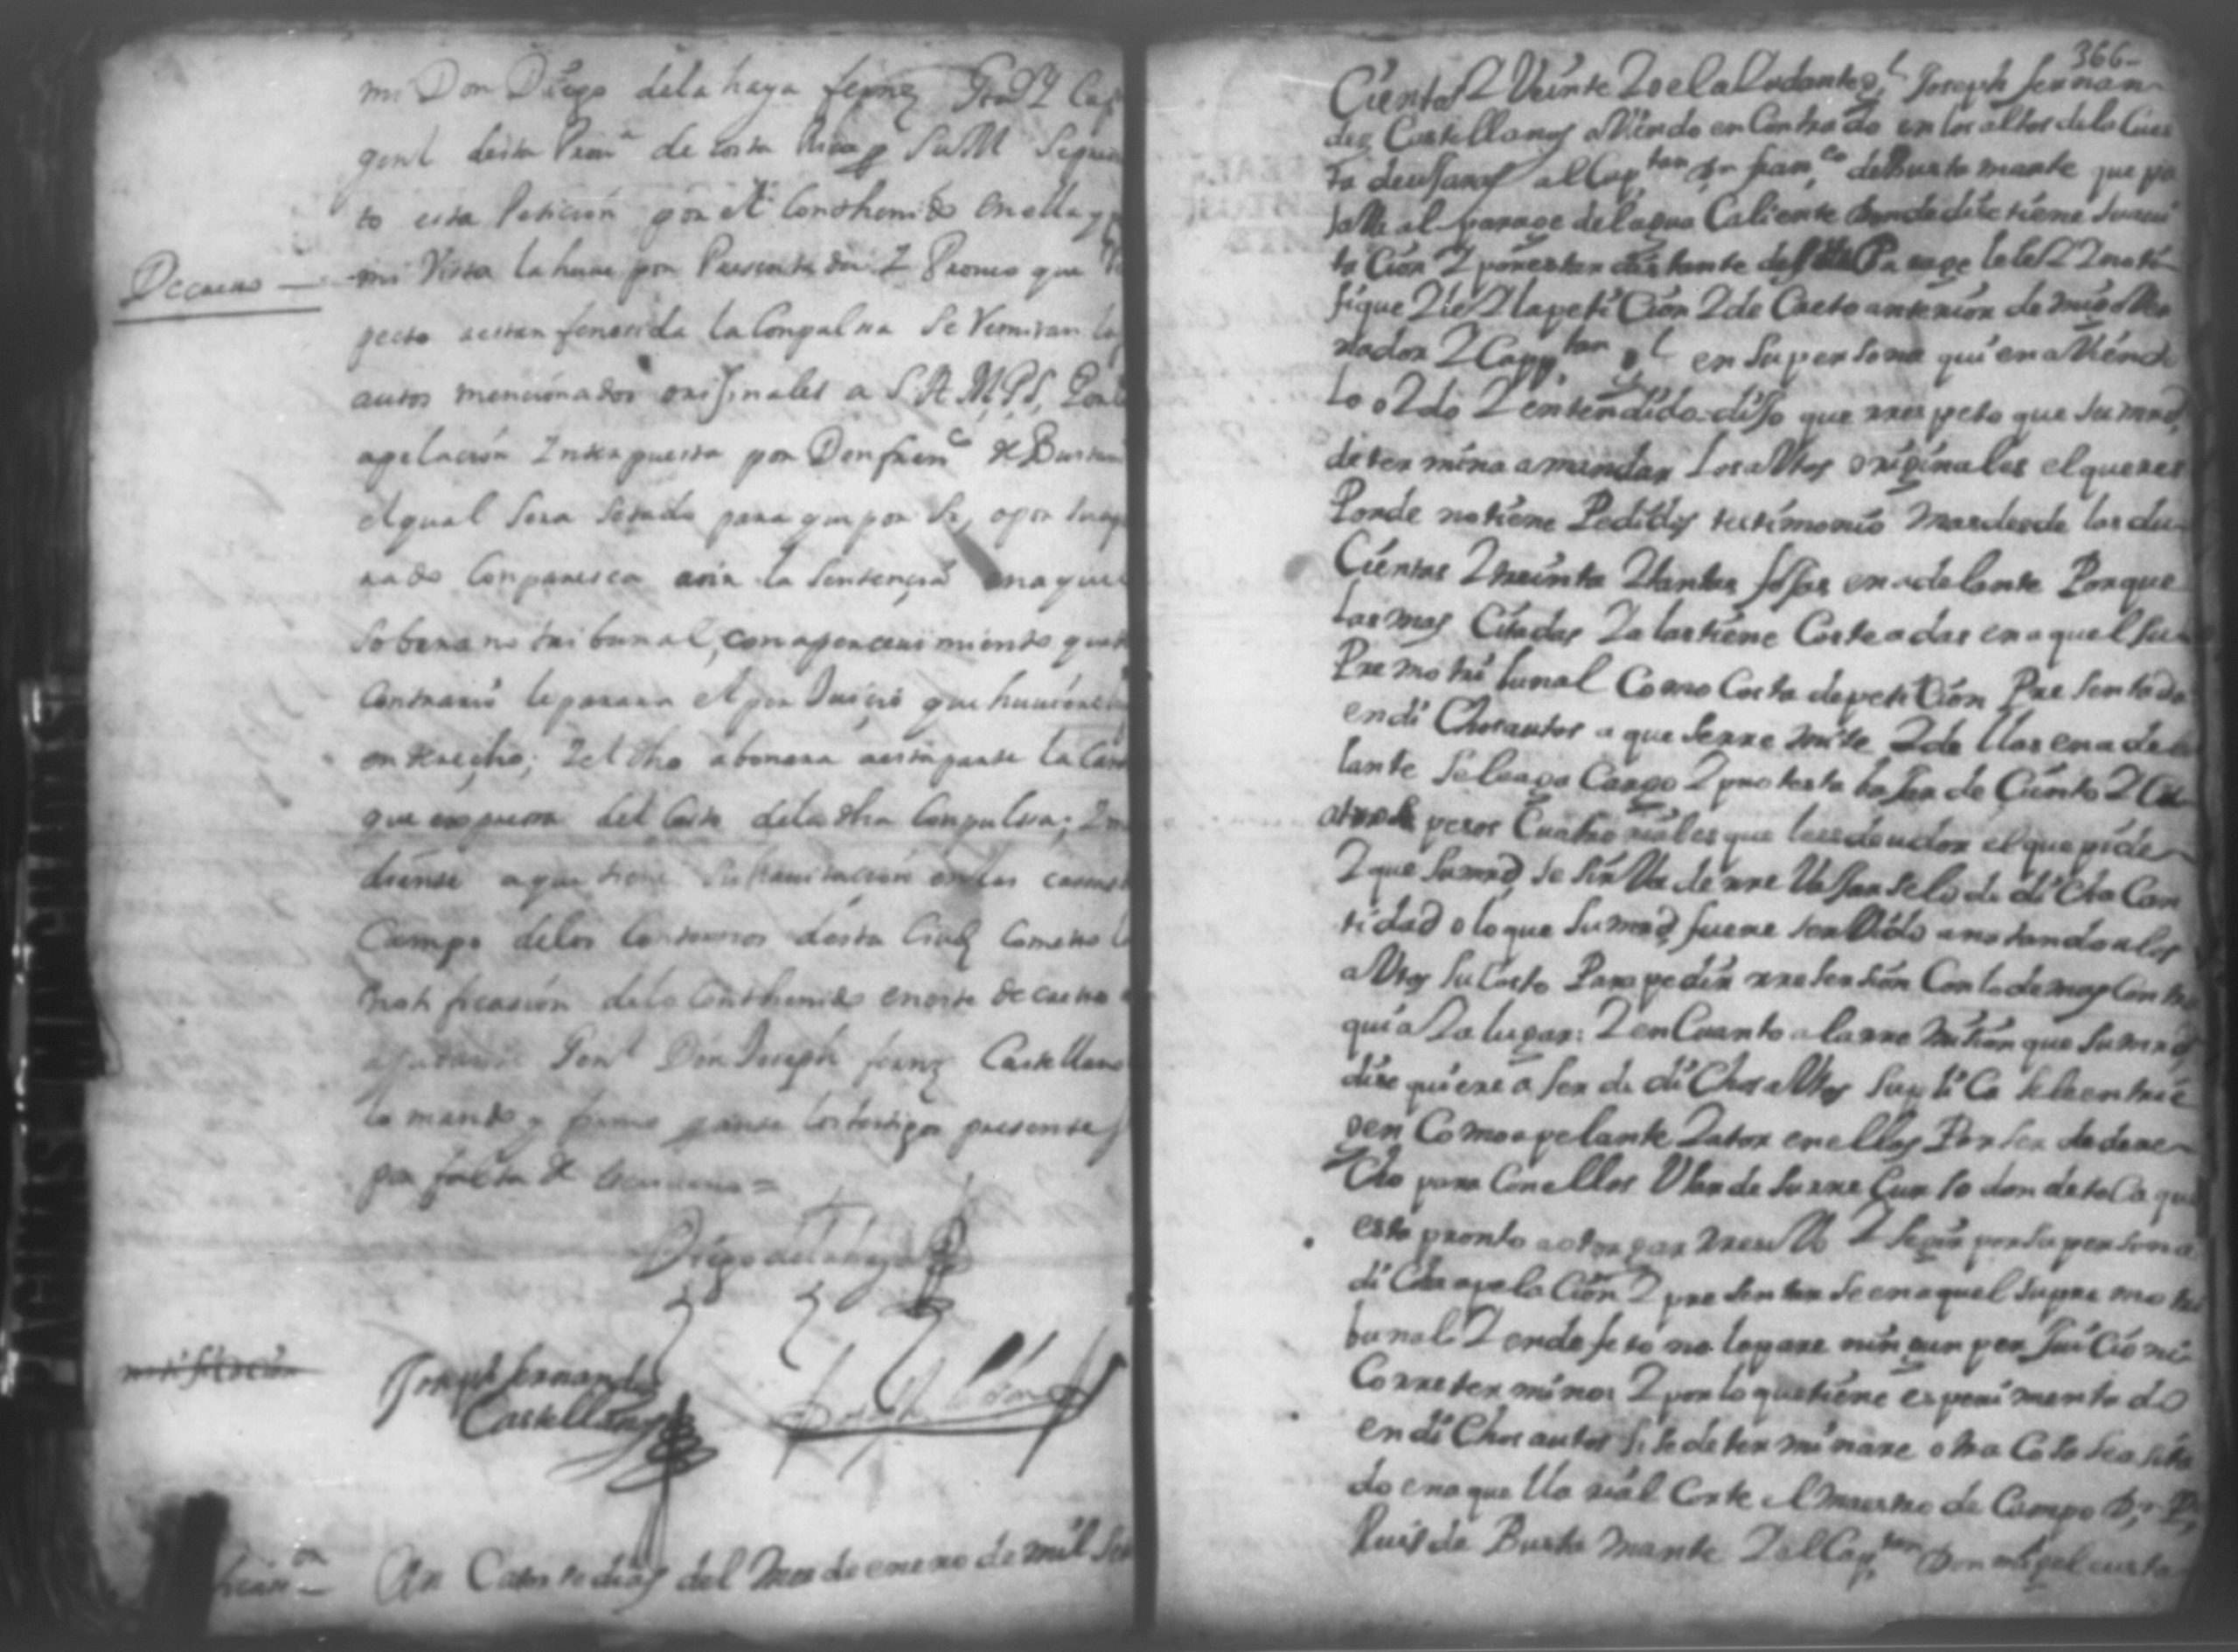 mi Don Diego dela haya fernz Gov.r y Cap
genl desta Prou.a de costa Rica p SuM
to esta Peticion por el Conthenido en ella y
Decreto — mi Vista la huue por Presentada Z Proueo que
pecto aestar fenesida la Conpulsa Se Remitan los
autos mencionados orijinales a S.A. M.P.S, Por la
apelacion Interpuesta por Don fran.co de Bustam
el qual sera Sitado para que por Si, o por su apo
rado Conparesca aoir la Sentençia en aquel
Soberano tribunal, con aperceuimiento que
Contrario le parara el perJuiçio que huuiere
en derecho; Z el dho abonara aestaparte la Can
que expresa del Costo dela dha Conpulsa; Z
diense a que tiene Su hauitacion en las casas
Campo delos Contornos desta Ciud Cometo la
Notificasion delo Conthenido en este decreto
ayudante Gen.l Don Joseph fernz Castellano
lo mando y firmo p ante los testigos presentes
por falta de escriuano =
Diego dela haya
notificacion
Joseph fernandes
Castellanos
En Catorse dias del Mes de enero de mil Se
366
Cientos Z Veinte Zo el aLudante g.l Joseph fernan
dez Castellanos aViendo enContrado en los altos dela Cues
ta deuJaras al Cap.tan D.n fran.co deBusta mante que pa
saVa al parage del agua Caliente donde dise tiene su aui
ta Cion Z por estar distante del dho Parage le leI Z noti
fique Z leI la peti Cion Z de Creto anterior de mi goVer
nador Z Capp.tan g.l en su persona quien aViendo
lo oZdo Z entendido diJo que rrespeto que su mrd,
deter mina amandar los aVtos originales el que res
Ponde no tiene Pedidos testimonio mas desde las du
Cientas Z treinta Z tantas foJas en adelante Porque
las mas Citadas Za las tiene Costeadas en aquel su
Pre mo tri bunal Como Costa depeti Cion Pre sentada
en di Chos autos a que se rre mite Z de llas en ade
lante se le aga Cargo Z protesta baJar de Ciento Z Cu
atro pesos Cuatro riales que le es deudor el que pide
Z que su mrd, se sirVa de rre baJar selo de di Cha Can
tidad o lo que su mrd, fuere serVido anotando a los
aVtos su Costo Para pedir rre sension Con lo demas Con tra
quia Za lugar: Z en Cuanto a la rre mision que su mrd,
dise quiere a ser de di Chos aVtos supli Ca se le entrie
gen Como apelante Zator en ellos Por ser de dere
Cho para Con ellos Vsar de su rre Curso donde to Ca que
esta pronto a otorgar Z seguir por su persona
di Cha apela Cion Z pre sentar se en aquel supre mo tri
bunal Z en defe to no le pare nin gun per Jui Cio ni
Corre ter minos Z por lo que tiene esperi menta do
en di Chos autos si se deter minare otra Cosa sea sita
do en aque lla rial Corte el maestro de Campo D.n P,
Ruis de Busta mante Z el Cap.tan Don migel